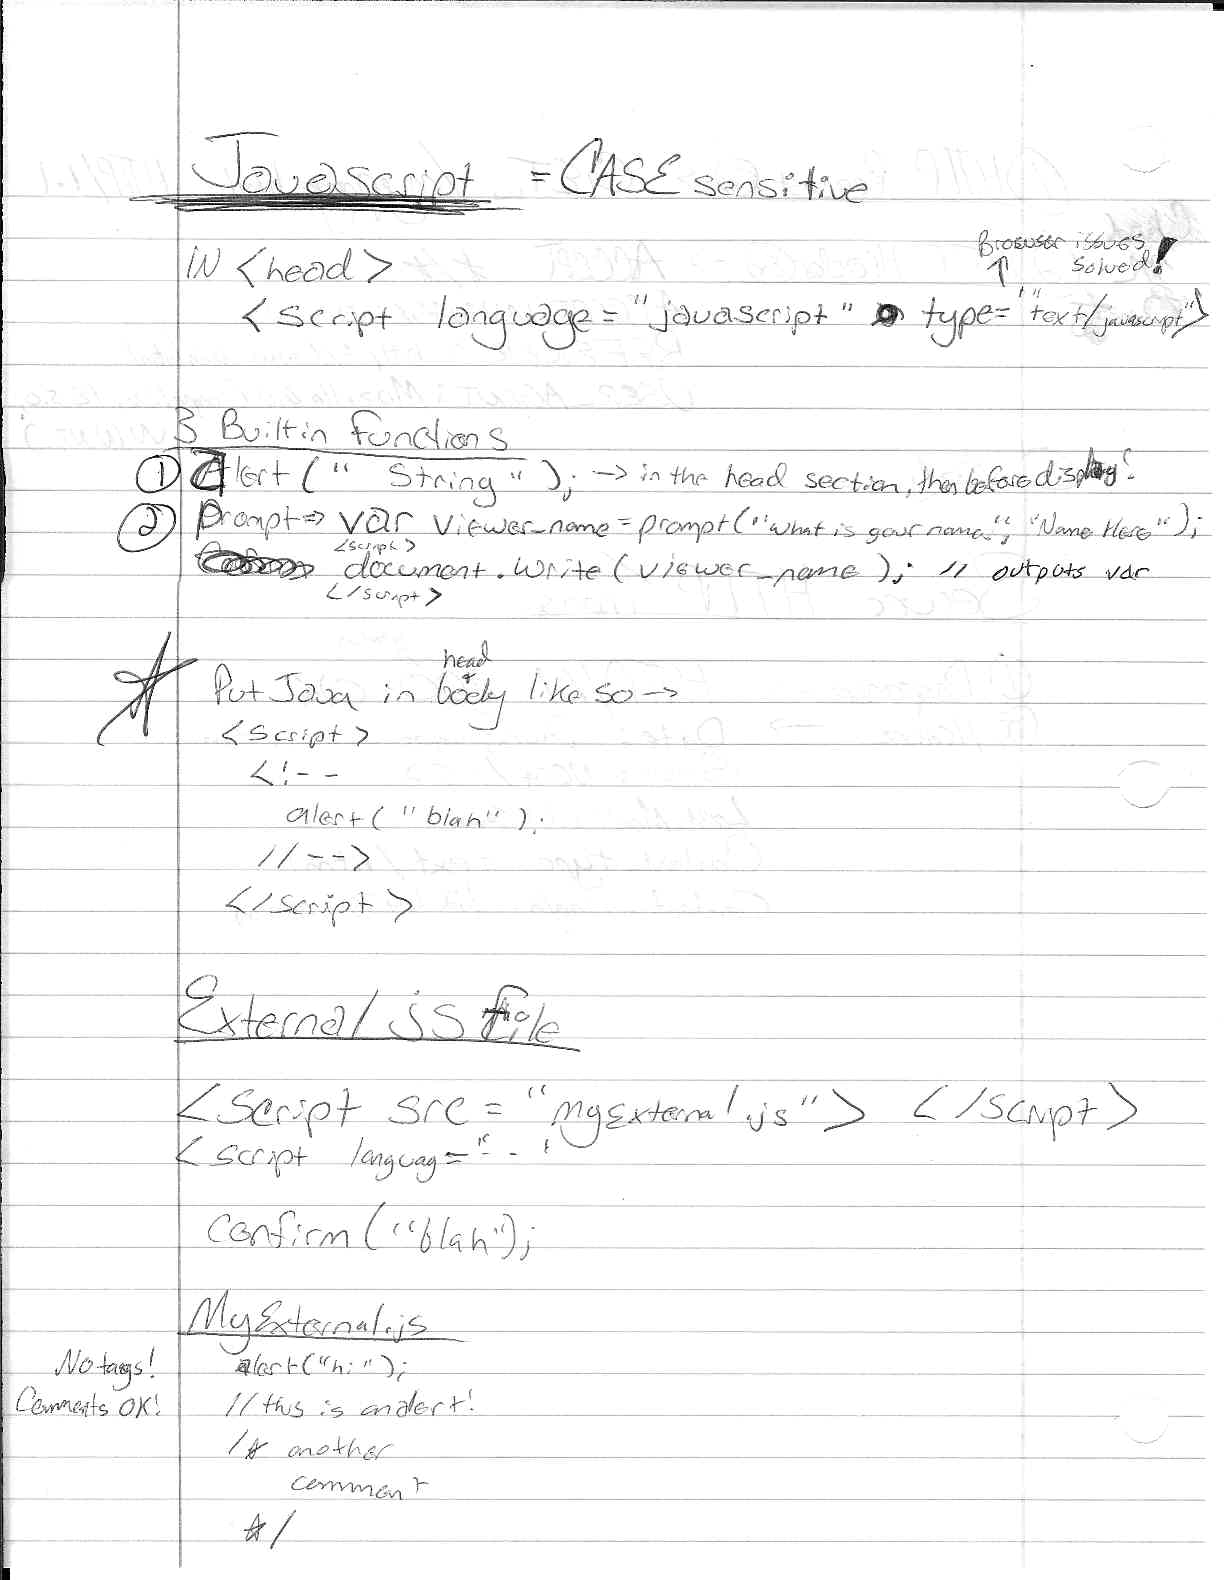 Javascript = CASE sensitive
Browser issues
solved!
IN <head>
<script language="javascript" type="text/javascript">
3 Builtin functions
① Alert(" String "); -> in the head section, then before display!
② Prompt=> var viewer_name=prompt("what is your name", "Name Here");
<script>
document.write(viewer_name); // outputs var
</script>
head
+
Put Java in body like so ->
<script>
<!--
alert("blah");
//-->
</script>
External js file
<script src="myExternal.js"> </script>
<script languag="--"
confirm("blah");
MyExternal.js
No tags! alert("hi");
Comments OK! // this is an alert!
/* another
comment
*/